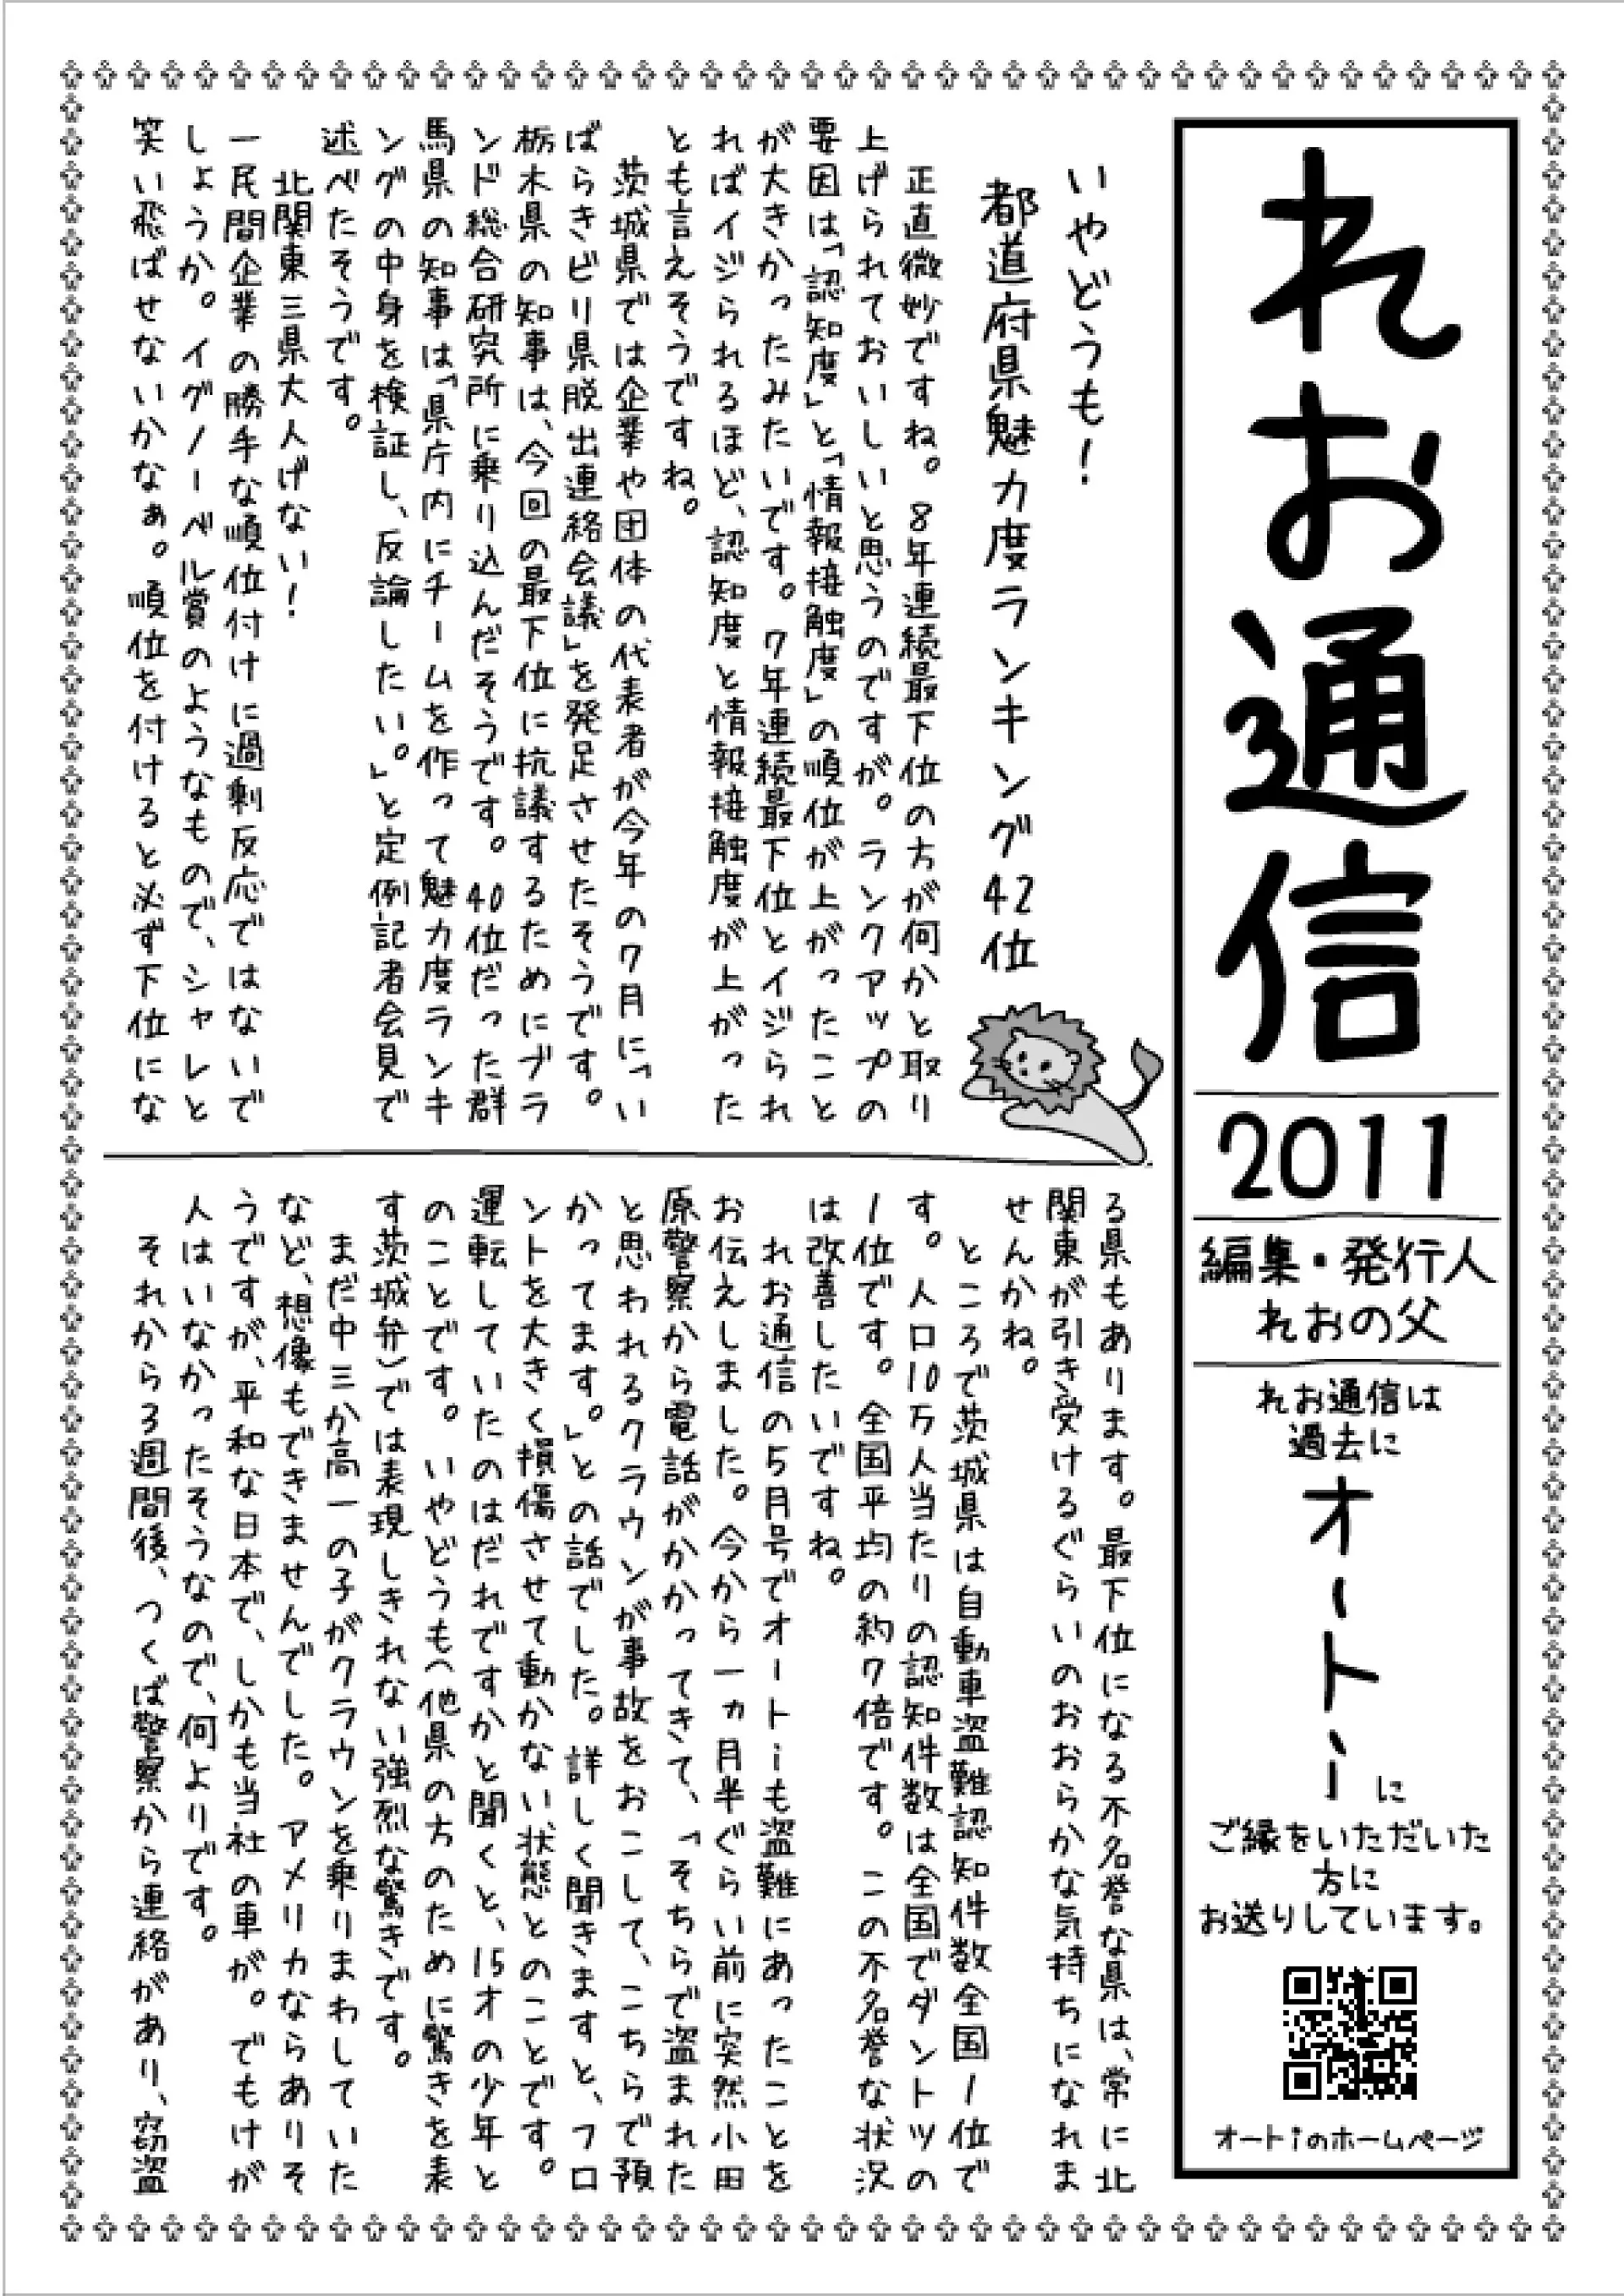 れお通信
2011
編集・発行人
れおの父
れお通信は
過去に
オートｉに
ご縁をいただいた
方に
お送りしています。
オートｉのホームページ
いやどうも！
都道府県魅力度ランキング42位
正直微妙ですね。8年連続最下位の方が何かと取り
上げられておいしいと思うのですが。ランクアップの
要因は「認知度」と「情報接触度」の順位が上がったこと
が大きかったみたいです。7年連続最下位とイジられ
ればイジられるほど、認知度と情報接触度が上がった
とも言えそうですね。
茨城県では企業や団体の代表者が今年の7月に「い
ばらきビリ県脱出連絡会議」を発足させたそうです。
栃木県の知事は、今回の最下位に抗議するためにブラ
ンド総合研究所に乗り込んだそうです。40位だった群
馬県の知事は「県庁内にチームを作って魅力度ランキ
ングの中身を検証し、反論したい。」と定例記者会見で
述べたそうです。
北関東三県大人げない！
一民間企業の勝手な順位付けに過剰反応ではないで
しょうか。イグノーベル賞のようなもので、シャレと
笑い飛ばせないかなぁ。順位を付けると必ず下位にな
る県もあります。最下位になる不名誉な県は、常に北
関東が引き受けるぐらいのおおらかな気持ちになれま
せんかね。
ところで茨城県は自動車盗難認知件数全国1位で
す。人口10万人当たりの認知件数は全国でダントツの
1位です。全国平均の約7倍です。この不名誉な状況
は改善したいですね。
れお通信の5月号でオートｉも盗難にあったことを
お伝えしました。今から一ヵ月半ぐらい前に突然小田
原警察から電話がかかってきて、「そちらで盗まれた
と思われるクラウンが事故をおこして、こちらで預
かってます。」との話でした。詳しく聞きますと、フロ
ントを大きく損傷させて動かない状態とのことです。
運転していたのはだれですかと聞くと、15才の少年と
のことです。いやどうも（他県の方のために驚きを表
す茨城弁）では表現しきれない強烈な驚きです。
まだ中三か高一の子がクラウンを乗りまわしていた
など、想像もできませんでした。アメリカならありそ
うですが、平和な日本で、しかも当社の車が。でもけが
人はいなかったそうなので、何よりです。
それから3週間後、つくば警察から連絡があり、窃盗